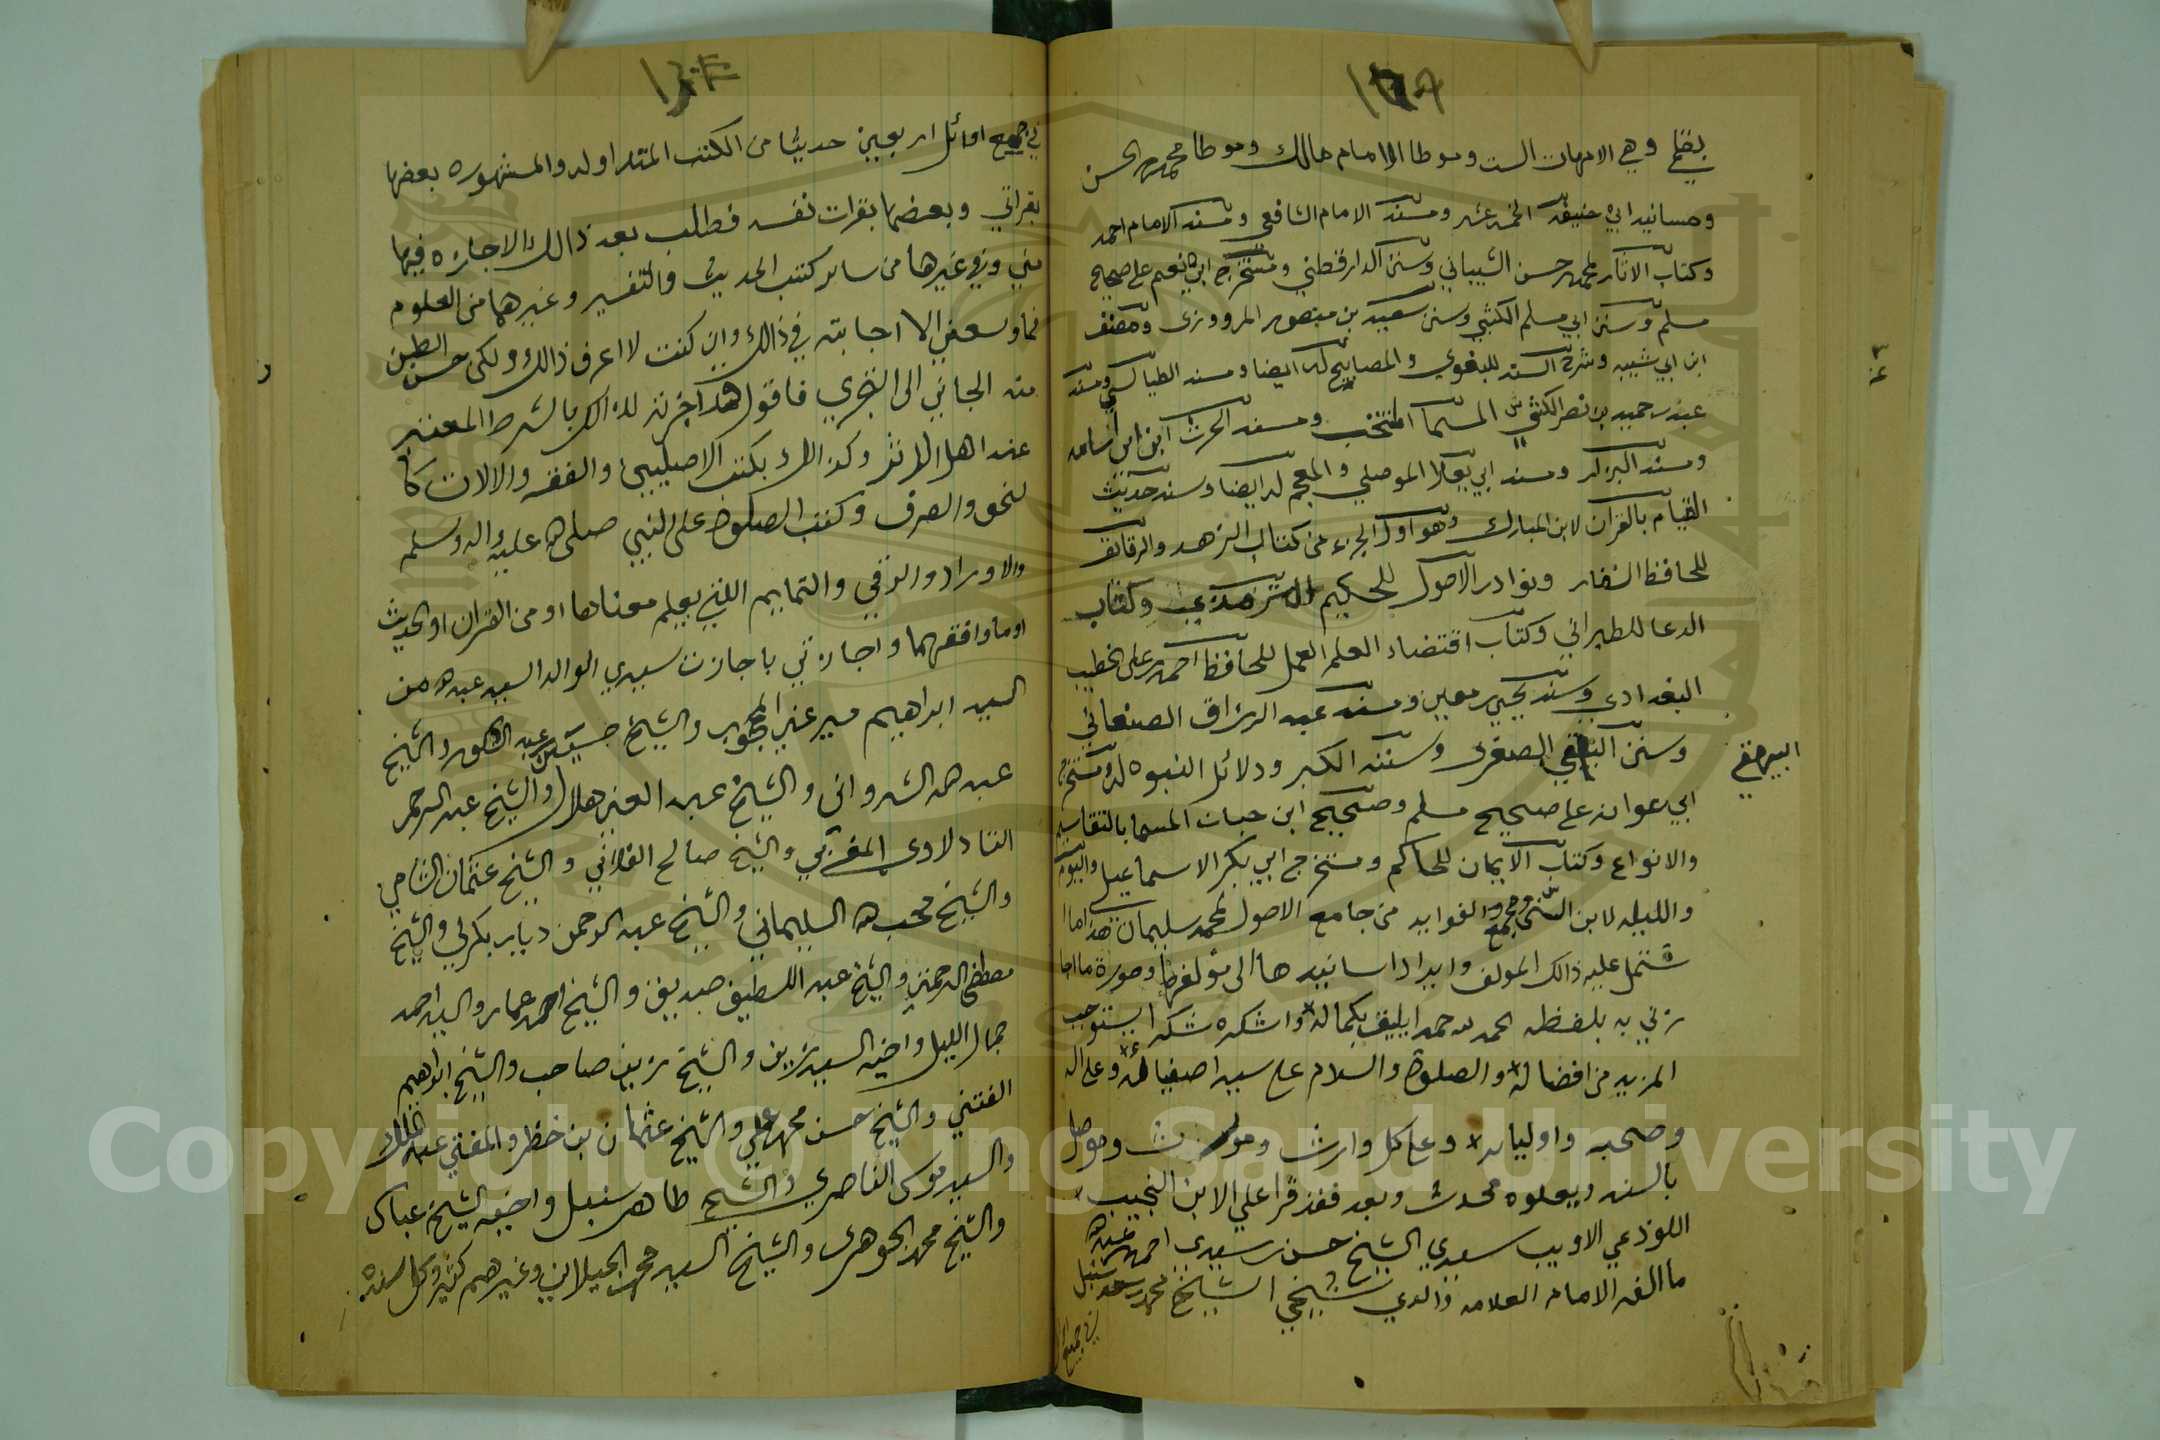 وهي الامهات الست وموطا الامام مالك وموطا محمد بن الحسن
ومسانيد ابي حنيفه الخمسه عشر ومسند الامام الشافعي ومسند الامام احمد
وكتاب الاثار لمحمد بن حسن الشيباني وسنن الدارقطني ومستخرج ابي نعيم على صحيح
مسلم وسنن ابي مسلم الكشي وسنن سعيد بن منصور المروزى ومصنف
ابن ابي شيبه وشرح السنه للبغوي والمصابيح له ايضا ومسند الطيالسي ومسند
عبد بن حميد بن نصر الكشي المسما المنتخب ومسند الحرث ابن ابي اسامه
ومسند البزار ومسند ابي يعلا الموصلي والمعجم له ايضا ومسند حديث
القيام بالقران لابن المبارك وهو اول الجزء من كتاب الزهد والرقائق
للحافظ ونوادر الاصول للحكيم الترمذي وكتاب
الدعا للطبراني وكتاب اقتضاء العلم العمل للحافظ احمد بن على الخطيب
البغدادي ومسند يحيى بن معين ومسند عبد الرزاق الصنعاني
وسنن البيهقي الصغرى وسننه الكبر ودلائل النبوه له ومستخرج
البيهقي
ابي عوانه على صحيح مسلم وصحيح ابن حبان المسما بالتقاسيم
والانواع وكتاب الايمان للحاكم ومستخرج ابي بكر الاسماعيلي واليوم
والليله لابن السني ومجمع الفوايد من جامع الاصول لمحمد بن سليمان هذا ما ا
شتمل عليه ذالك المولف وايراد اسانيدها الى مؤلفها وصورة ما اجا
زني به بلفظه الحمد لله حمدا يليق بكماله واشكره شكرا يستوجب
المزيد من افضاله والصلوة والسلام على سيد اصفيائه وعلى اله
وصحبه واوليائه وعلى كل وارث ومورث وموصل
بالسند ويعلوه محدث وبعد فقد قرا علي الابن النجيب
اللوذعي الاديب سعيدي الشيخ حسن بن سيدي احمد عبد الله
ما الفه الامام العلامه والدي شيخي الشيخ محمد سعيد سنبل
في جميع اوائل
في جميع اوائل اربعين حديثا من الكتب المتداوله والمشهوره بعضها
بقراتي وبعضها بقرات نفسه فطلب بعد ذالك الاجازه فيها
مني وفي غيرها من سائر كتب الحديث والتفسير وغيرهما من العلوم
فما وسعني الا اجابته في ذالك وان كنت لا اعرف ذالك ولكن حسن الظن
منه الجاني الى التجري فاقول قد اجزته لذالك بالشرط المعتبر
عند اهل الاثر وكذالك بكتب الاصليين والفقه والالات كا
لنحو والصرف وكتب الصلوة على النبي صلى الله عليه واله وسلم
والاوراد والرقي والتمايم اللتي يعلم معناها او من القران او الحديث
او ما وافقهما واجازني باجازت سيدي الوالد السيد عبد الله من
السيد ابراهيم مير غني المحجوب والشيخ حسين عبد الشكور والشيخ
عبد الله الشرواني والشيخ عبد الغني هلال والشيخ عبد الرحمن
التادلاوى المغربي والشيخ صالح الفلاني والشيخ عثمان الشامي
والشيخ محب الله السليماني والشيخ عبد الرحمن ديار بكرلي والشيخ
مصطفى الرحمتي والشيخ عبد اللطيف صديق والشيخ احمد عمار والسيد احمد
جمال الليل واخيه السيد زين والشيخ زين صاحب والشيخ ابراهيم
الفتني والشيخ حسن محمد علي والشيخ عثمان بن خظر والمفتي عبد الملك
والسيد موسى الناصري والشيخ طاهر سنبل واخيه الشيخ عباس
والشيخ محمد الجوهرى والشيخ السيد محمد الجيلاني وغيرهم كثير وكل بسنده
Copyright © King Saud University